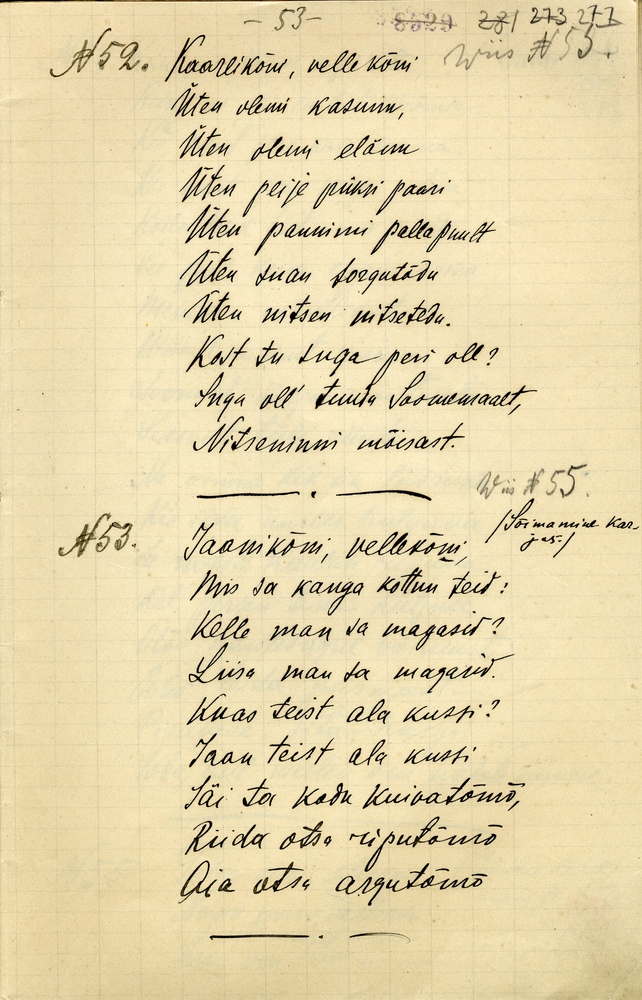 - 53 -
8529 281 273 277
Wiis N 55.
N 52. Kaarlikõni, vellekõni
Üten olemi kasunu,
Üten olemi elänu
Üten peije püksi paari
Üten pannimi pallapuult
Üten suan sorgutõdu
Üten nitsen nitsetedu.
Kost tu suga peri oll?
Suga oll' tuudu Soomemaalt,
Nitseninni mõisast.
Wiis N 55.
(Sõimamine kar-
jas)
N 53. Jaanikõni, vellekõni,
Mis sa kanga kottun teid?
Kelle man sa magasid?
Liisa man sa magasid.
Kuas teist ala kussi?
Jaan teist ala kussi
Jäi ta kodu kuivatõmõ,
Riida otsa riputõmõ
Aia otsa argutõmõ